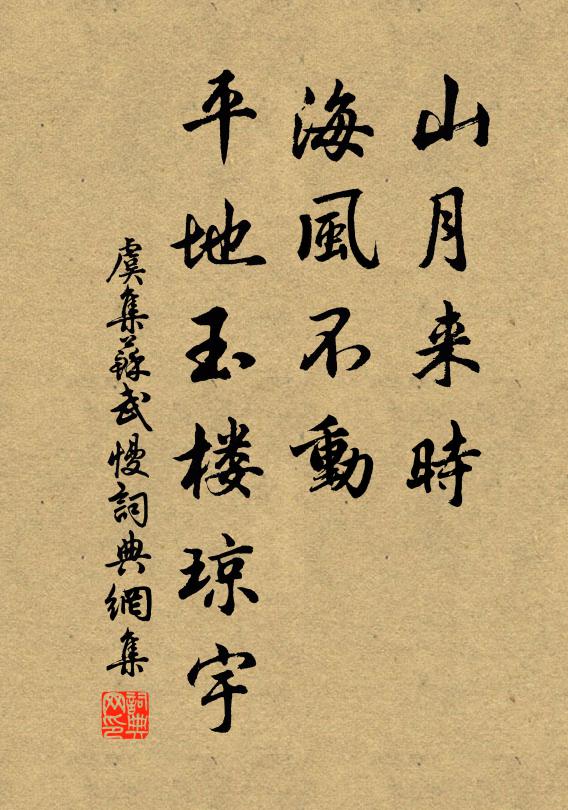 山月来時
海風不動
平地玉楼琼宇
虞集蘇武慢詞典網集
詞典网印